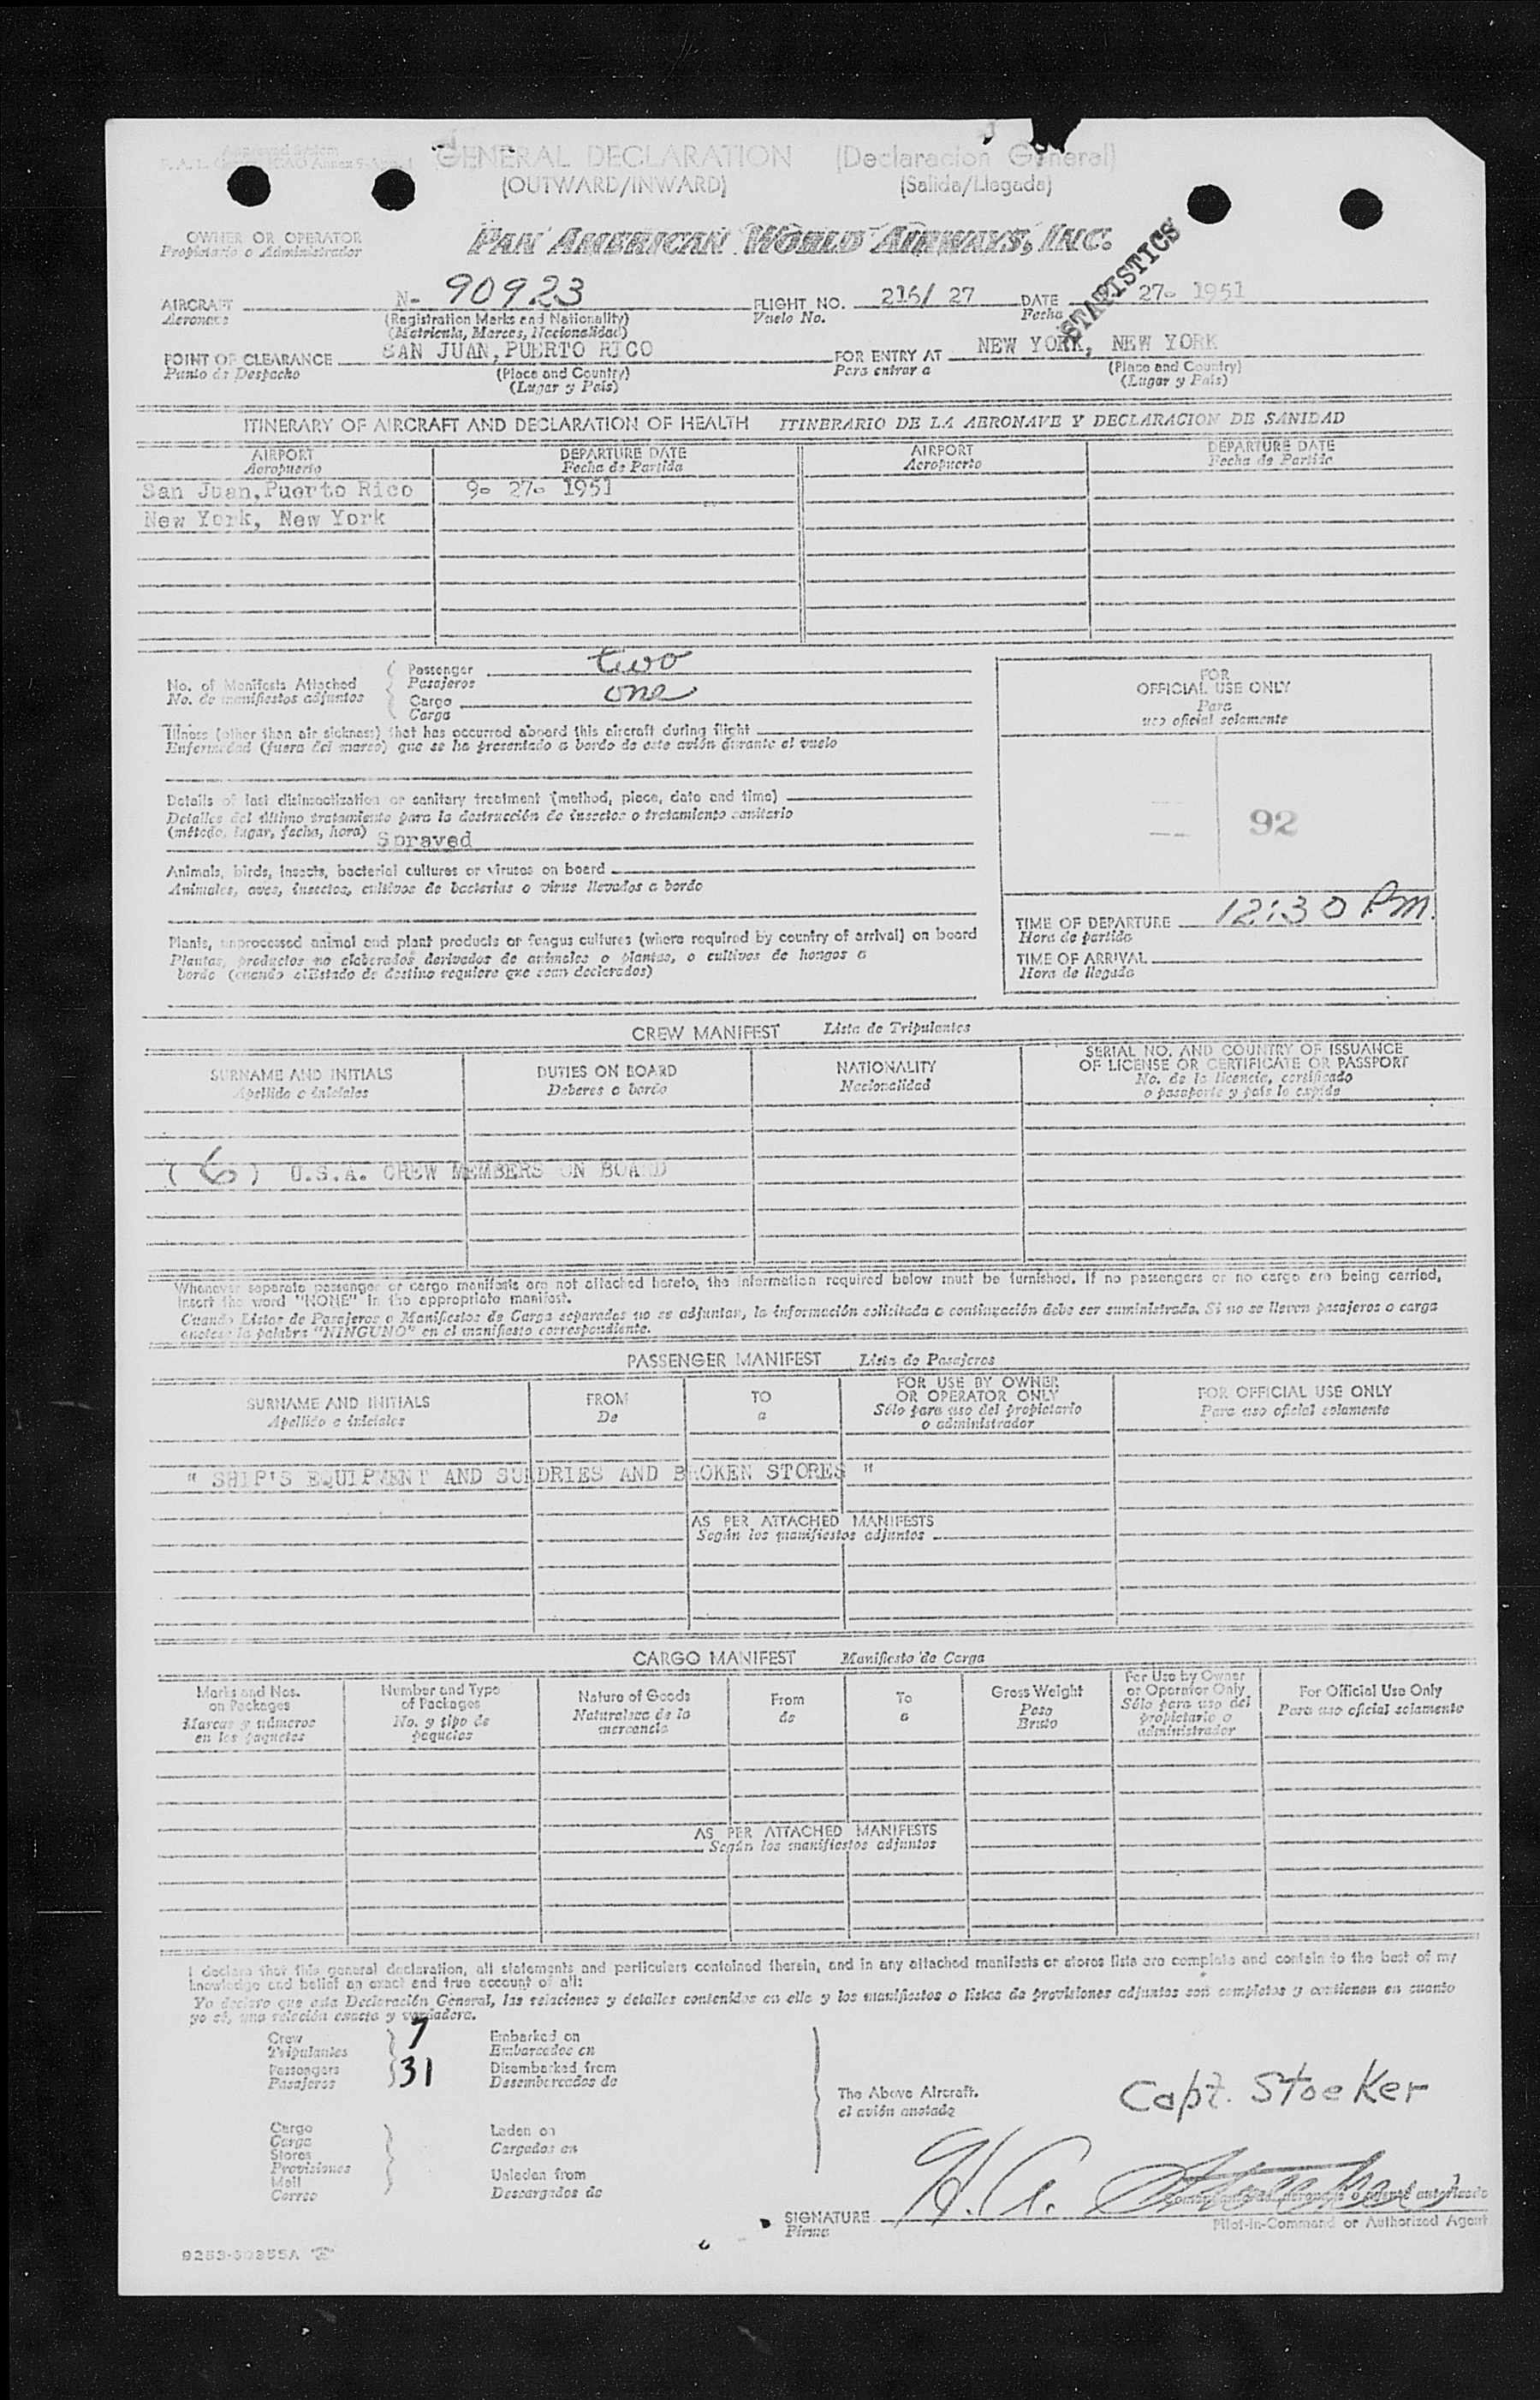 Approved System
GENERAL DECLARATION (Declaracion General)
(OUTWARD/INWARD) (Salida/Llegada)
OWNER OR OPERATOR
Propietario o Administrador
PAN AMERICAN WORLD AIRWAYS, INC.
STATISTICS
AIRCRAFT N- 90923 FLIGHT NO. 216/ 27 DATE 27- 1951
Aeronave (Registration Marks and Nationality) Vuelo No. Fecha
(Matricula, Marcas, Nacionalidad)
POINT OF CLEARANCE SAN JUAN, PUERTO RICO FOR ENTRY AT NEW YORK, NEW YORK
Punto de Despacho (Place and Country) Para entrar a (Place and Country)
(Lugar y País) (Lugar y País)
ITINERARY OF AIRCRAFT AND DECLARATION OF HEALTH ITINERARIO DE LA AERONAVE Y DECLARACION DE SANIDAD
AIRPORT DEPARTURE DATE AIRPORT DEPARTURE DATE
Aeropuerto Fecha de Partida Aeropuerto Fecha de Partida
San Juan, Puerto Rico 9- 27- 1951
New York, New York
No. of Manifests Attached Passenger two
No. de manifiestos adjuntos Pasajeros
Cargo one
Carga
FOR
OFFICIAL USE ONLY
Para
uso oficial solamente
Illness (other than air sickness) that has occurred aboard this aircraft during flight
Enfermedad (fuera del mareo) que se ha presentado a bordo de este avión durante el vuelo
Details of last disinsectization or sanitary treatment (method, place, date and time)
Detalles del último tratamiento para la destrucción de insectos o tratamiento sanitario
(método, lugar, fecha, hora) Sprayed
92
Animals, birds, insects, bacterial cultures or viruses on board
Animales, aves, insectos, cultivos de bacterias o virus llevados a bordo
TIME OF DEPARTURE 12:30 P.m.
Hora de partida
TIME OF ARRIVAL
Hora de llegada
Plants, unprocessed animal and plant products or fungus cultures (where required by country of arrival) on board
Plantas, productos no elaborados derivados de animales o plantas, o cultivos de hongos a
bordo (cuando el Estado de destino requiere que sean declarados)
CREW MANIFEST Lista de Tripulantes
SURNAME AND INITIALS DUTIES ON BOARD NATIONALITY SERIAL NO. AND COUNTRY OF ISSUANCE
OF LICENSE OR CERTIFICATE OR PASSPORT
Apellido e iniciales Deberes a bordo Nacionalidad No. de la licencia, certificado
o pasaporte y país lo expide
( 6 ) U.S.A. CREW MEMBERS ON BOARD
Whenever separate passenger or cargo manifests are not attached hereto, the information required below must be furnished. If no passengers or no cargo are being carried,
insert the word "NONE" in the appropriate manifest.
Cuando Listas de Pasajeros o Manifiestos de Carga separadas no se adjuntan, la información solicitada a continuación debe ser suministrada. Si no se lleven pasajeros o carga
anótese la palabra "NINGUNO" en el manifiesto correspondiente.
PASSENGER MANIFEST Lista de Pasajeros
SURNAME AND INITIALS FROM TO FOR USE BY OWNER FOR OFFICIAL USE ONLY
OR OPERATOR ONLY
Apellido e iniciales De a Sólo para uso del propietario Para uso oficial solamente
o administrador
" SHIP'S EQUIPMENT AND SUNDRIES AND BROKEN STORES "
AS PER ATTACHED MANIFESTS
Según los manifiestos adjuntos
CARGO MANIFEST Manifiesto de Carga
Marks and Nos. Number and Type Nature of Goods From To Gross Weight For Use by Owner For Official Use Only
on Packages of Packages Naturaleza de la de a Peso or Operator Only Para uso oficial solamente
Marcas y números No. y tipo de mercancía Bruto Sólo para uso del
en los paquetes paquetes propietario o
administrador
AS PER ATTACHED MANIFESTS
Según los manifiestos adjuntos
I declare that this general declaration, all statements and particulars contained therein, and in any attached manifests or stores lists are complete and contain to the best of my
knowledge and belief an exact and true account of all:
Yo declaro que esta Declaración General, las relaciones y detalles contenidos en ella y los manifiestos o listas de provisiones adjuntas son completos y contienen en cuanto
yo sé, una relación exacta y verdadera.
Crew 7 Embarked on
Tripulantes Embarcados en
Passengers 31 Disembarked from
Pasajeros Desembarcados de
The Above Aircraft.
el avión anotado
Capt. Stoeker
Cargo Laden on
Carga Cargados en
Stores
Provisiones
Mail Unladen from
Correo Descargados de
SIGNATURE H. A. Stoeker
Firma
Comandante de aeronave o agente autorizado
Pilot-in-Command or Authorized Agent